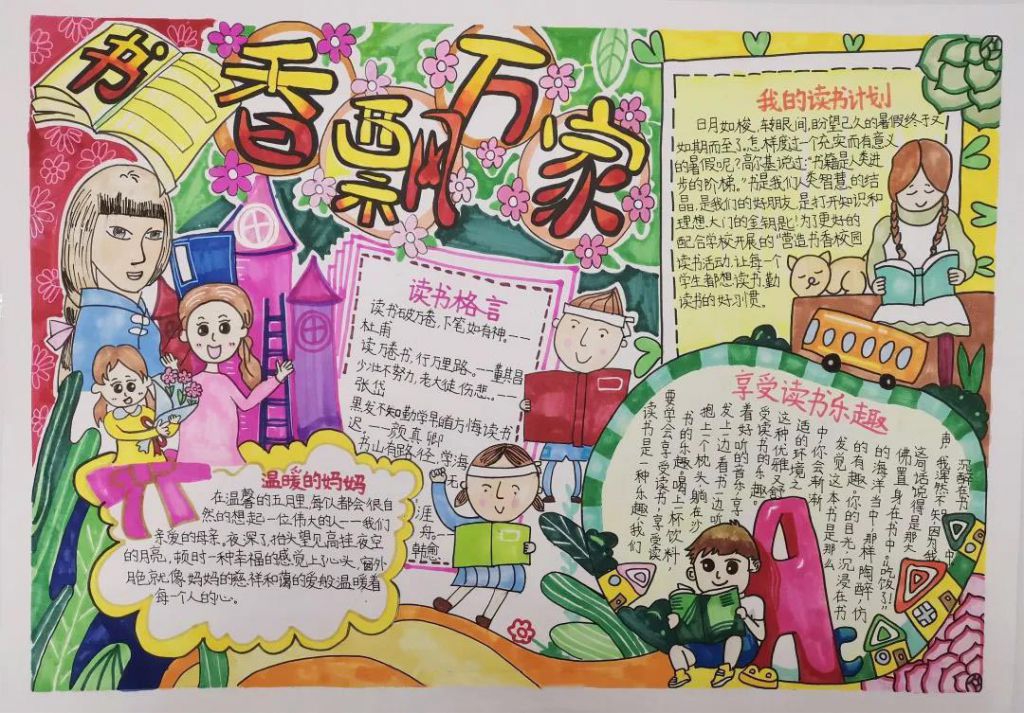 书香飘万家
我的读书计划
日月如梭,转眼间,盼望已久的暑假终于又
如期而至了,怎样度过一个充实而有意义
的暑假呢?高尔基说过:"书籍是人类进
步的阶梯。"书是我们人类智慧的结
晶,是我们的好朋友,是打开知识和
理想大门的金钥匙!为了更好的
配合学校开展的"营造书香校园
读书活动,让每一个
学生都想读书,勤
读书的好习惯。
读书格言
读书破万卷,下笔如有神。——
杜甫
读万卷书,行万里路。——董其昌
少壮不努力,老大徒伤悲。——
张岱
黑发不知勤学早,首方悔读书
迟。——颜真卿
书山有路 径,学海
无
涯
舟。——
韩愈
享受读书乐趣
读书是一种乐趣,我们
要学会享受读书,享受读
书的乐趣。喝上一杯饮料
抱上一个枕头,躺在沙
发上一边看书一边听
着好听的音乐,享
受读书的乐趣。
这种优雅又舒
适的环境之
中,你会渐渐
发觉这本书是那么
的有趣。你的目光沉浸在书
的海洋当中,那样陶醉,仿
佛置身在书中,"吃饭了!"
这句话说得是那大
声,我浑然不知,因为我
沉醉在书中
温暖的妈妈
在温馨的五月里,每似都会很自
然的想起一位伟大的人——我们
亲爱的母亲,夜深了,抬头望见高挂夜空
的月亮,顿时一种幸福的感觉上心头,窗外
月色就像妈妈的慈祥和蔼的爱般温暖着
每一个人的心。